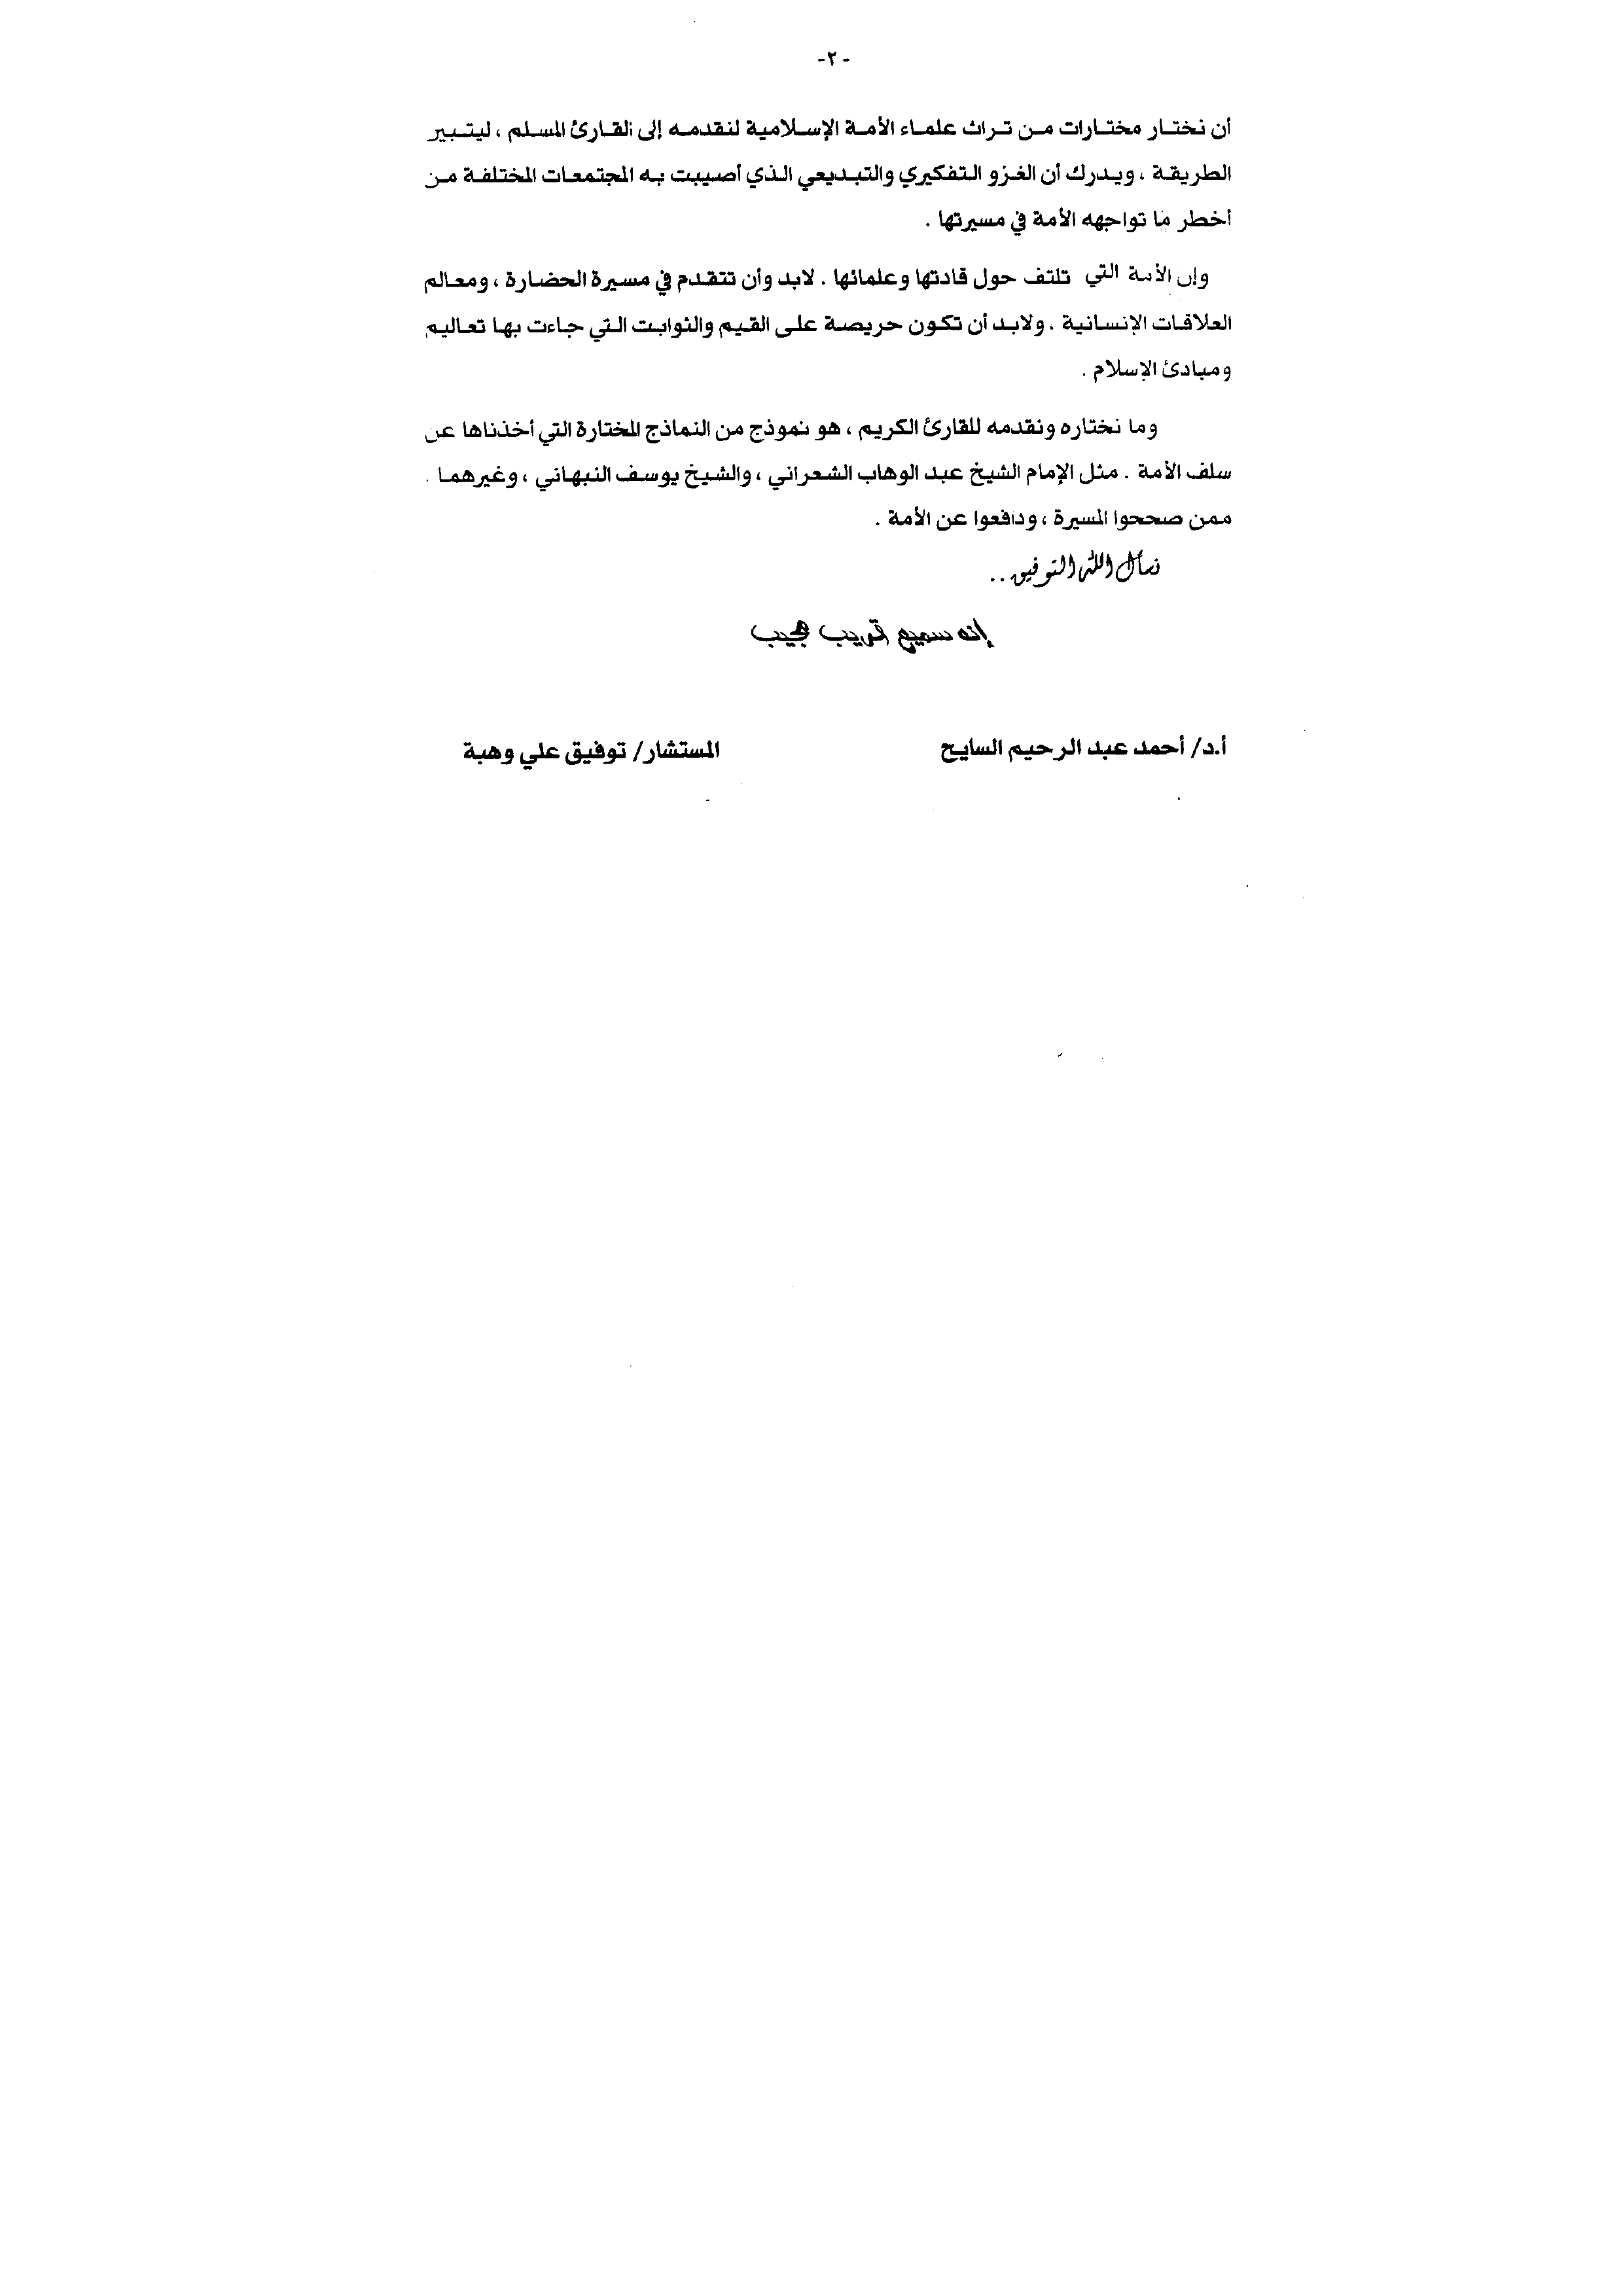 -٢-
أن نختار مختارات من تراث علماء الأمة الإسلامية لنقدمه إلى القارئ المسلم ، ليتبير
الطريقة ، ويدرك أن الغزو التفكيري والتبديعي الذي أصيبت به المجتمعات المختلفة من
أخطر ما تواجهه الأمة في مسيرتها .
وإن الأمة التي تلتف حول قادتها وعلمائها . لابد وأن تتقدم في مسيرة الحضارة ، ومعالم
العلاقات الإنسانية ، ولابد أن تكون حريصة على القيم والثوابت التي جاءت بها تعاليم
ومبادئ الإسلام .
وما نختاره ونقدمه للقارئ الكريم ، هو نموذج من النماذج المختارة التي أخذناها عن
سلف الأمة . مثل الإمام الشيخ عبد الوهاب الشعراني ، والشيخ يوسف النبهاني ، وغيرهما .
ممن صححوا المسيرة ، ودافعوا عن الأمة .
نسأل الله التوفيق ..
إنه سميع قريب مجيب
أ.د/ أحمد عبد الرحيم السايح المستشار/ توفيق علي وهبة